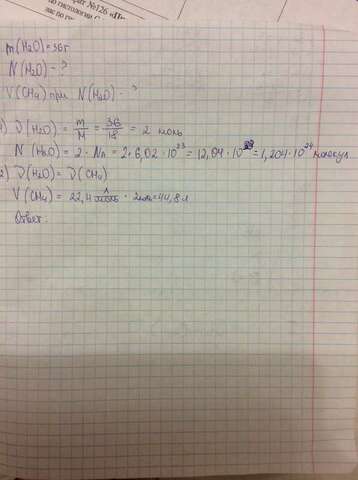 №126 «Пи
по гистологии
зис по
m(H₂O)=36г
N(H₂O)-?
V(CH₄) при N(H₂O)-?
1) ν(H₂O) = m/M = 36/18 = 2 моль
N(H₂O) = 2 · Nₐ = 2 · 6,02 · 10²³ = 12,04 · 10²³ = 1,204 · 10²⁴ молекул
2) ν(H₂O) = ν(CH₄)
V(CH₄) = 22,4 л/моль · 2моль = 44,8 л
Ответ: